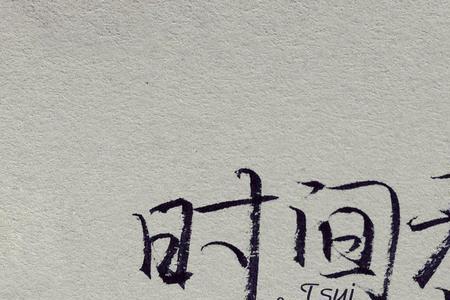 时间
Tsui